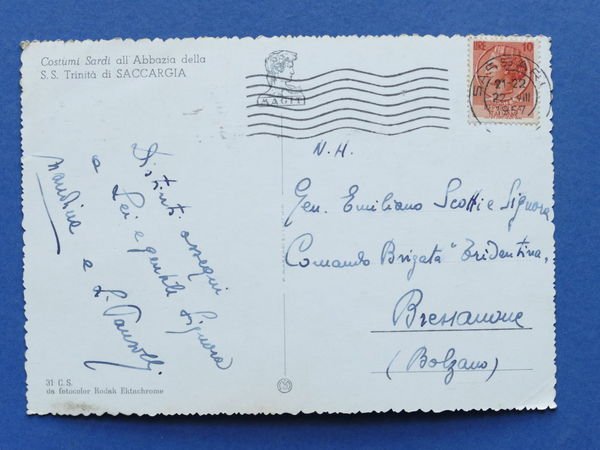 Costumi Sardi all'Abbazia della
S.S. Trinità di SACCARGIA
MAGIE
LIRE 10
SASSARI
21-22
22 VIII
1957
Distinti ossequi
a Lei e gentile Signora
e L.
N.H.
Gen. Emiliano Scotti e Signora
Comando Brigata "Tridentina"
Bressanone
(Bolzano)
31 C.S.
da fotocolor Kodak Ektachrome